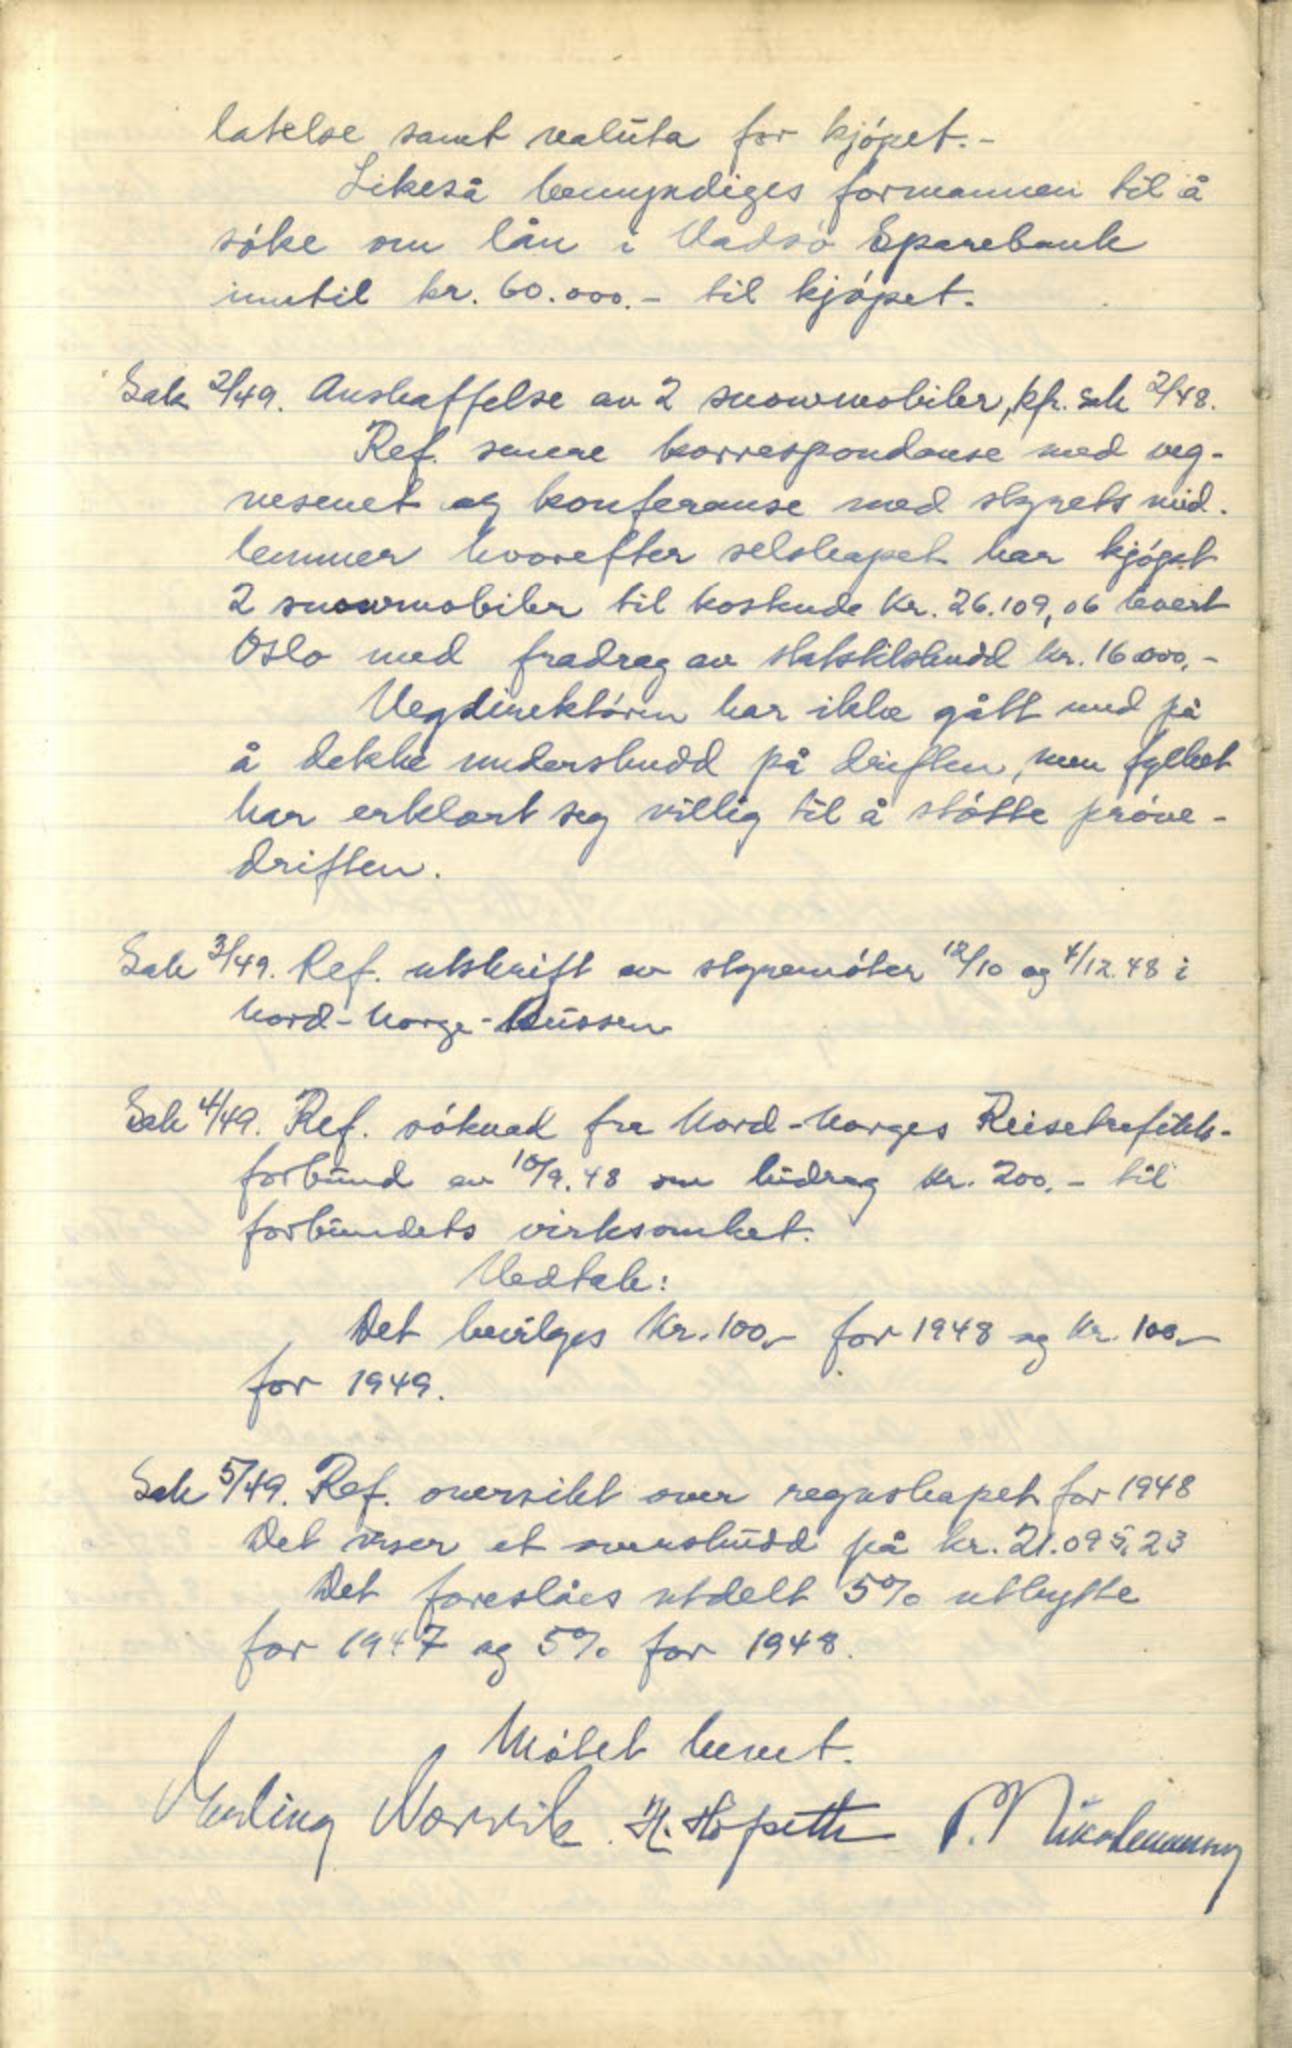 latelse samt valuta for kjøpet.-
Likeså bemyndiges formannen til å
søke om lån i Vadsø Sparebank
inntil kr. 60.000.- til kjøpet.
Sak 2/49. Anskaffelse av 2 snowmobiler, kfr. sak 2/48.
Ref. senere korrespondanse med veg-
vesenet og konferanse med styrets med-
lemmer hvorefter selskapet har kjøpt
2 snowmobiler til kostende kr. 26.109,06 levert
Oslo med fradrag av statstilskudd kr. 16000,-
Vegdirektøren har ikke gått med på
å dekke underskudd på driften, men fylket
har erklært seg villig til å støtte prøve-
driften.
Sak 3/49. Ref. utskrift av styremøter 12/10 og 4/12.48 i
Nord-Norge-Bussen
Sak 4/49. Ref. søknad fra Nord-Norges Reisetrafikk-
forbund av 10/9.48 om bidrag kr. 200.- til
forbundets virksomhet.
Vedtak:
Det bevilges kr. 100,- for 1948 og kr. 100,-
for 1949.
Sak 5/49. Ref. oversikt over regnskapet for 1948
Det viser et overskudd på kr. 21.095,23
Det foreslåes utdelt 5% utbytte
for 1947 og 5% for 1948.
Møtet hevet.
Erling Norvik H. P. Nikodemussen